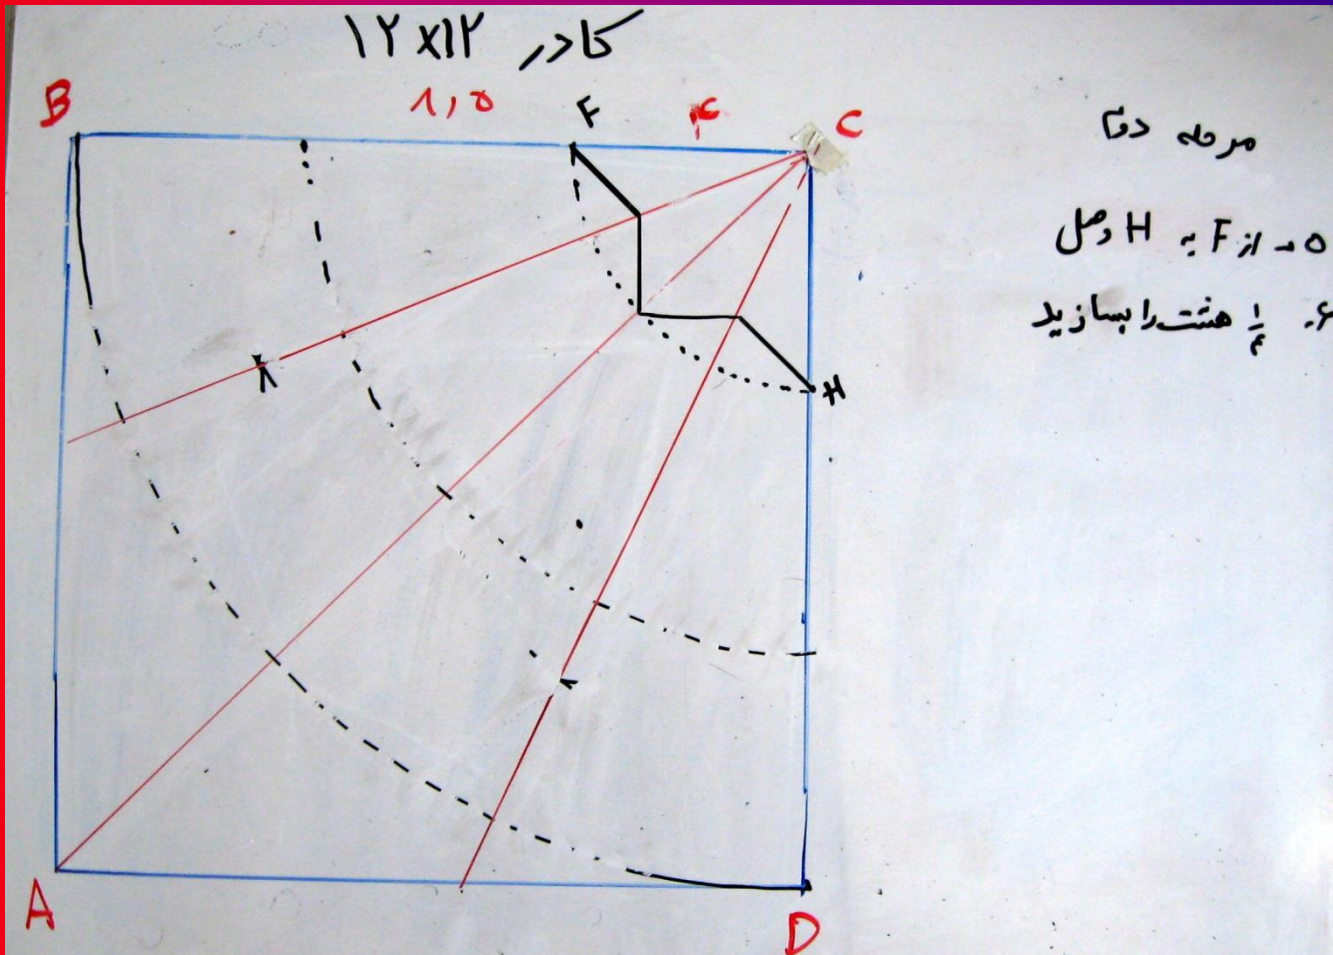 کادر ۱۲x۱۲
B ۸,۵ F ۴ C
مرحله دوم
۵- از F به H وصل
۶- ۱/۴ هشت را بسازید
H
A D